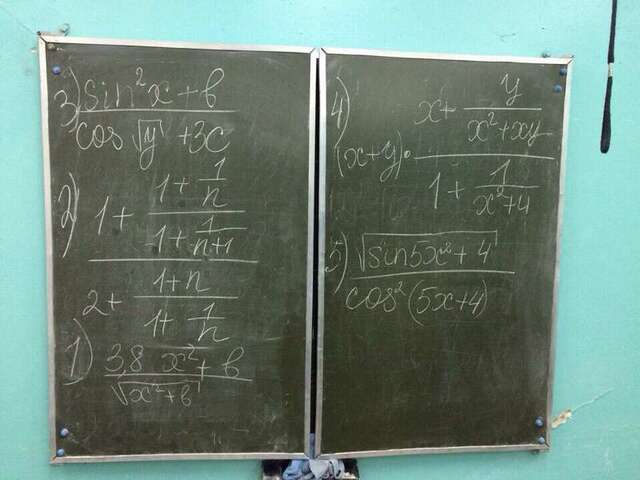 3) (sin²x + b) / (cos √y + 3c)
2) (1 + (1 + 1/n) / (1 + 1/(n+1))) / (2 + (1 + n) / (1 + 1/n))
1) (3,8 x² + b) / √(x² + b)
4) (x + y) · (x + y / (x² + xy)) / (1 + 1 / (x² + 4))
5) √(sin 5x² + 4) / cos² (5x + 4)